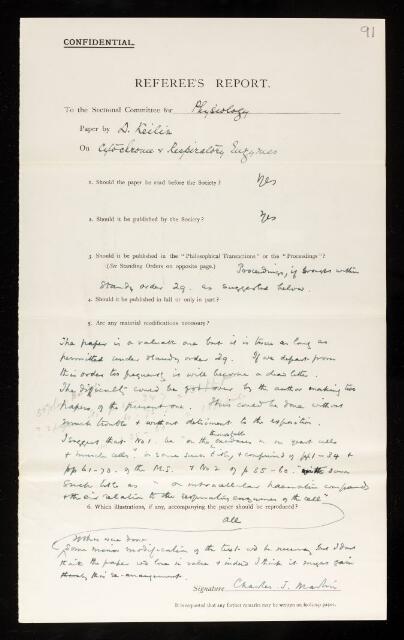 91
CONFIDENTIAL.
REFEREE'S REPORT.
To the Sectional Committee for Physiology
Paper by D. Keilin
On Cytochrome & Respiratory Enzymes
1. Should the paper be read before the Society? Yes
2. Should it be published by the Society? Yes
3. Should it be published in the "Philosophical Transactions" or the "Proceedings"?
(See Standing Orders on opposite page.) Proceedings, if brought within
Standg order 29. as suggested below.
4. Should it be published in full or only in part?
5. Are any material modifications necessary?
The paper is a valuable one but it is twice as long as
permitted under standg order 29. If we depart from
this order too frequently it will become a dead letter.
The difficulty could be got over by the author making two
papers of the present one. This could be done without
much trouble & without detriment to the exposition.
I suggest that No 1. be "on the in yeast cells
& muscle cells" or some such title, & comprised of pp 1-34 &
pp 61-70 of the M.S. & No 2 of p 35-60 with some
such title as "on intracellular haematin compounds
& their relation to the respiration enzymes of the cell"
6. Which illustrations, if any, accompanying the paper should be reproduced?
all
If this were done
Some minor modification of the text wd be necessary but I don't
think the paper wd lose in value & indeed I think it might gain
thereby this re-arrangement.
Signature Charles J. Martin
It is requested that any further remarks may be written on foolscap paper.